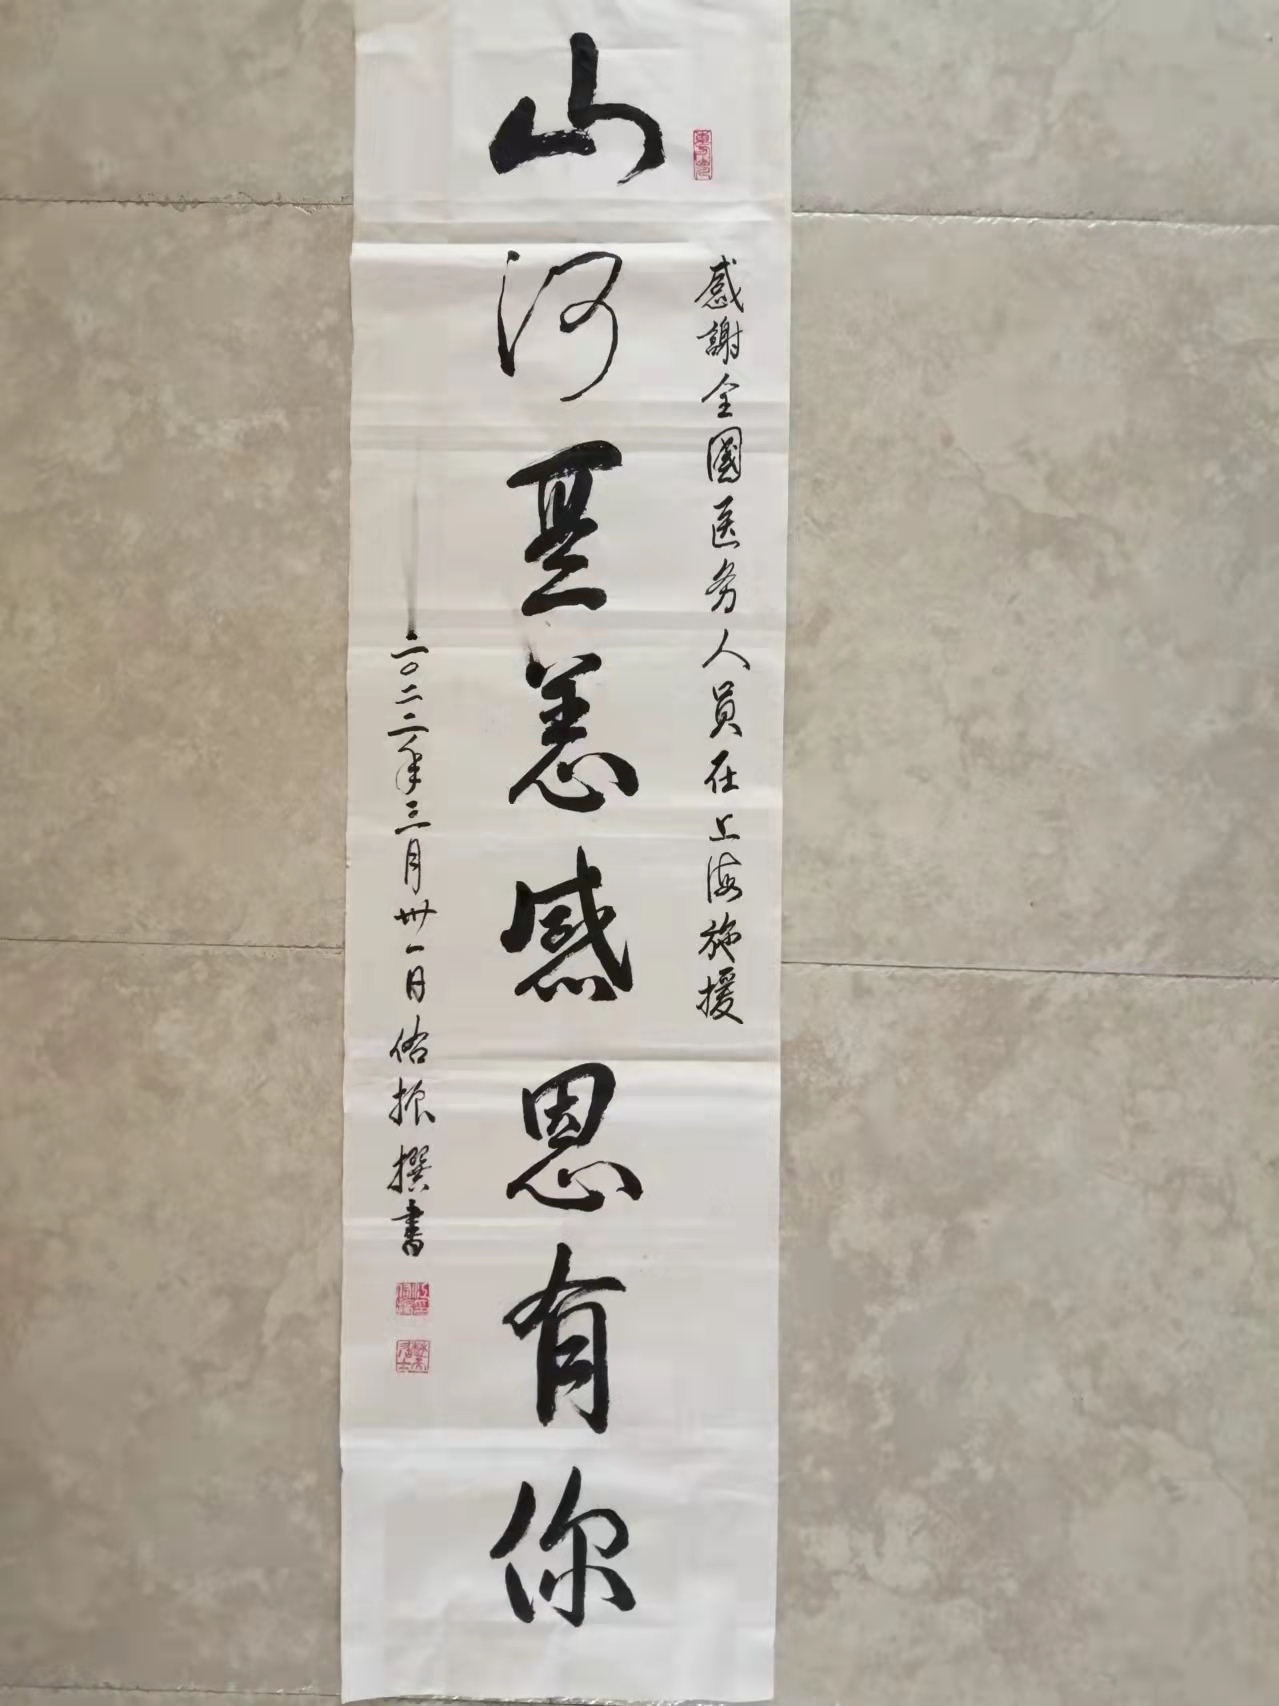 感謝全國医务人員在上海施援
山河無恙感恩有你
二〇二二年三月卅一日振撰書